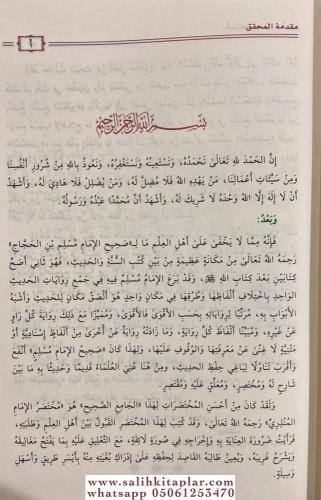 مقدمة المحقق
أ
بسم الله الرحمن الرحيم
إِنَّ الحَمْدَ لله تَعَالَىٰ نَحْمَدُهُ، وَنَسْتَعِينُهُ وَنَسْتَغْفِرُهُ، وَنَعُوذُ بِاللهِ مِنْ شُرُورِ أَنْفُسِنَا
وَمِنْ سَيِّئَاتِ أَعْمَالِنَا، مَنْ يَهْدِهِ اللهُ فَلَا مُضِلَّ لَهُ، وَمَنْ يُضْلِلْ فَلَا هَادِيَ لَهُ، وَأَشْهَدُ
أَنْ لَا إِلَهَ إِلَّا اللهُ وَحْدَهُ لَا شَرِيكَ لَهُ، وَأَشْهَدُ أَنَّ مُحَمَّدًا عَبْدُهُ وَرَسُولُهُ.
وَبَعْدُ:
فَإِنَّهُ مِمَّا لَا يَخْفَىٰ عَلَىٰ أَهْلِ العِلْمِ مَا لِـ«صَحِيحِ الإِمَامِ مُسْلِمِ بْنِ الحَجَّاجِ»
رَحِمَهُ اللهُ تَعَالَىٰ مِنْ مَكَانَةٍ عَظِيمَةٍ مِنْ بَيْنِ كُتُبِ السُّنَّةِ وَالحَدِيثِ، فَهُوَ ثَانِي أَصَحِّ
كِتَابَيْنِ بَعْدَ كِتَابِ اللهِ ﷻ، وَقَدْ بَرَعَ الإِمَامُ مُسْلِمٌ فِيهِ فِي جَمْعِ رِوَايَاتِ الحَدِيثِ
الوَاحِدِ بِاخْتِلَافِ أَلْفَاظِهَا وَطُرُقِهَا فِي مَكَانٍ وَاحِدٍ هُوَ أَلْصَقُ مَكَانٍ لِلحَدِيثِ وَأَشْبَهُ
الأَبْوَابِ بِهِ، مُرَتِّبًا لِرِوَايَاتِهِ بِحَسَبِ الأَقْوَىٰ، فَالأَقْوَىٰ، وَمُمَيِّزًا مَعَ ذَلِكَ رِوَايَةَ كُلِّ رَاوٍ
عَنْ غَيْرِهِ، وَمُبَيِّنًا أَلْفَاظَ كُلِّ رِوَايَةٍ، وَمَا زَادَتْهُ رِوَايَةٌ عَنْ أُخْرَىٰ مِنْ أَلْفَاظٍ إِسْنَادِيَّةٍ أَوْ
مَتْنِيَّةٍ لَا غِنَىٰ عَنْ مَعْرِفَتِهَا وَالوُقُوفِ عَلَيْهَا، وَلِهَذَا كَانَ «صَحِيحُ الإِمَامِ مُسْلِمٍ» أَنْفَعَ
وَأَقْرَبَ تَنَاوُلًا لِبَاغِي حِفْظِ الحَدِيثِ، وَمِنْ هُنَا عُنِيَ العُلَمَاءُ قَدِيمًا وَحَدِيثًا بِهِ مَا بَيْنَ
شَارِحٍ لَهُ وَمُخْتَصِرٍ، وَمُعَلِّقٍ عَلَيْهِ وَمُقْتَصِرٍ.
وَلَقَدْ كَانَ مِنْ أَحْسَنِ المُخْتَصَرَاتِ لِهَذَا «الجَامِعِ الصَّحِيحِ» هُوَ «مُخْتَصَرُ الإِمَامِ
المُنْذِرِيِّ» رَحِمَهُ اللهُ تَعَالَىٰ، وَقَدْ كُتِبَ لِهَذَا المُخْتَصَرِ القَبُولُ بَيْنَ أَهْلِ العِلْمِ وَطَلَبَتِهِ،
فَرَأَيْتُ ضَرُورَةَ العِنَايَةِ بِهِ وَإِخْرَاجِهِ فِي صُورَةٍ لَائِقَةٍ، مَعَ التَّعْلِيقِ عَلَيْهِ بِمَا يَفْتَحُ مَغَالِيقَهُ
وَيَشْرَحُ غَرِيبَهُ، وَيُعِينُ طَالِبَهُ القَاصِدَ لِحِفْظِهِ عَلَىٰ إِدْرَاكِ بُغْيَتِهِ مِنْهُ بِأَيْسَرِ طَرِيقٍ وَأَسْهَلِ
وَسِيلَةٍ.
www.salihkitaplar.com
whatsapp 05061253470